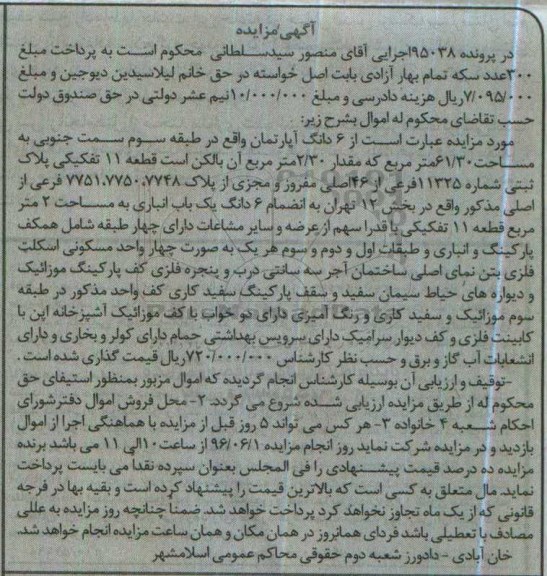 آگهی مزایده
در پرونده ۹۵۰۳۸اجرایی آقای منصور سیدسلطانی محکوم است به پرداخت مبلغ
۳۰۰عدد سکه تمام بهار آزادی بابت اصل خواسته در حق خانم لیلاسیدین دیوجین و مبلغ
۷/۰۹۵/۰۰۰ریال هزینه دادرسی و مبلغ ۱۰/۰۰۰/۰۰۰نیم عشر دولتی در حق صندوق دولت
حسب تقاضای محکوم له اموال بشرح زیر:
مورد مزایده عبارت است از ۶ دانگ آپارتمان واقع در طبقه سوم سمت جنوبی به
مساحت۶۱/۳۰متر مربع که مقدار ۲/۳۰متر مربع آن بالکن است قطعه ۱۱ تفکیکی پلاک
ثبتی شماره ۱۱۳۲۵فرعی از ۴۶اصلی مفروز و مجزی از پلاک ۷۷۵۱،۷۷۵۰،۷۷۴۸ فرعی از
اصلی مذکور واقع در بخش ۱۲ تهران به انضمام ۶ دانگ یک باب انباری به مساحت ۲ متر
مربع قطعه ۱۱ تفکیکی با قدرا سهم از عرضه و سایر مشاعات دارای چهار طبقه شامل همکف
پارکینگ و انباری و طبقات اول و دوم و سوم هر یک به صورت چهار واحد مسکونی اسکلت
فلزی بتن نمای اصلی ساختمان آجر سه سانتی درب و پنجره فلزی کف پارکینگ موزائیک
و دیواره های حیاط سیمان سفید و سقف پارکینگ سفید کاری کف واحد مذکور در طبقه
سوم موزائیک و سفید کاری و رنگ آمیزی دارای دو خواب با کف موزائیک آشپزخانه اپن با
کابینت فلزی و کف دیوار سرامیک دارای سرویس بهداشتی حمام دارای کولر و بخاری و دارای
انشعابات آب گاز و برق و حسب نظر کارشناس ۷۲۰/۰۰۰/۰۰۰ریال قیمت گذاری شده است .
-توقیف و ارزیابی آن بوسیله کارشناس انجام گردیده که اموال مزبور بمنظور استیفای حق
محکوم له از طریق مزایده ارزیابی شده شروع می گردد. ۲- محل فروش اموال دفترشورای
احکام شعبه ۴ خانواده ۳- هر کس می تواند ۵ روز قبل از مزایده با هماهنگی اجرا از اموال
بازدید و در مزایده شرکت نماید روز انجام مزایده ۹۶/۰۶/۱ از ساعت۱۰الی ۱۱ می باشد برنده
مزایده ده درصد قیمت پیشنهادی را فی المجلس بعنوان سپرده نقدا می بایست پرداخت
نماید. مال متعلق به کسی است که بالاترین قیمت را پیشنهاد کرده است و بقیه بها در فرجه
قانونی که از یک ماه تجاوز نخواهد کرد پرداخت خواهد شد. ضمناً چنانچه روز مزایده به عللی
مصادف با تعطیلی باشد فردای همانروز در همان مکان و همان ساعت مزایده انجام خواهد شد.
خان آبادی - دادورز شعبه دوم حقوقی محاکم عمومی اسلامشهر